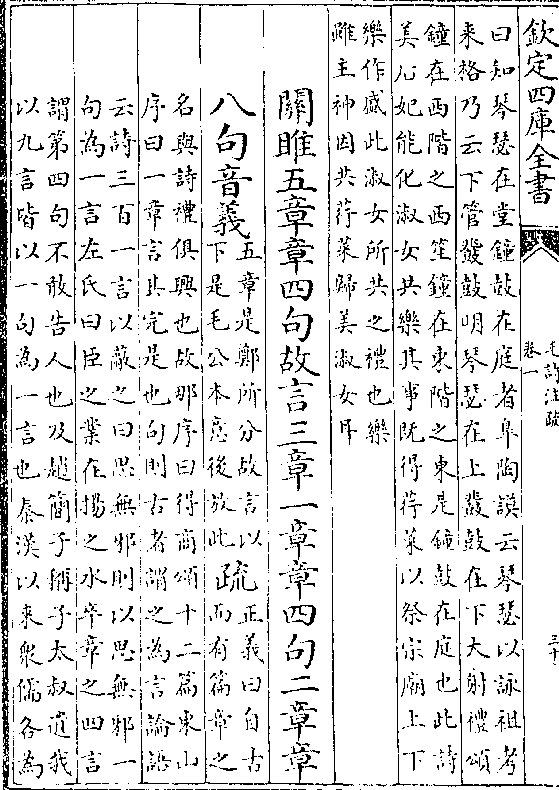 欽定四庫全書
毛詩注疏
卷一
三十
曰知琴瑟在堂鐘鼓在庭者皐陶謨云琴瑟以詠祖考
来格乃云下管鼗鼓明琴瑟在上鼗鼓在下大射禮頌
鐘在西階之西笙鐘在東階之東是鐘鼓在庭也此詩
美后妃能化淑女共樂其事既得荇菜以祭宗廟上下
樂作盛此淑女所共之禮也樂
雖主神因共荇菜歸美淑女耳
關雎五章章四句故言三章一章章四句二章章
八句音義五章是鄭所分故言以
下是毛公本意後放此疏正義曰自古
而有篇章之
名與詩禮俱興也故那序曰得商頌十二篇東山
序曰一章言其完是也句則古者謂之為言論語
云詩三百一言以蔽之曰思無邪則以思無邪一
句為一言左氏曰臣之業在揚之水卒章之四言
謂第四句不敢告人也及趙簡子稱子太叔遺我
以九言皆以一句為一言也秦漢以来衆儒各為